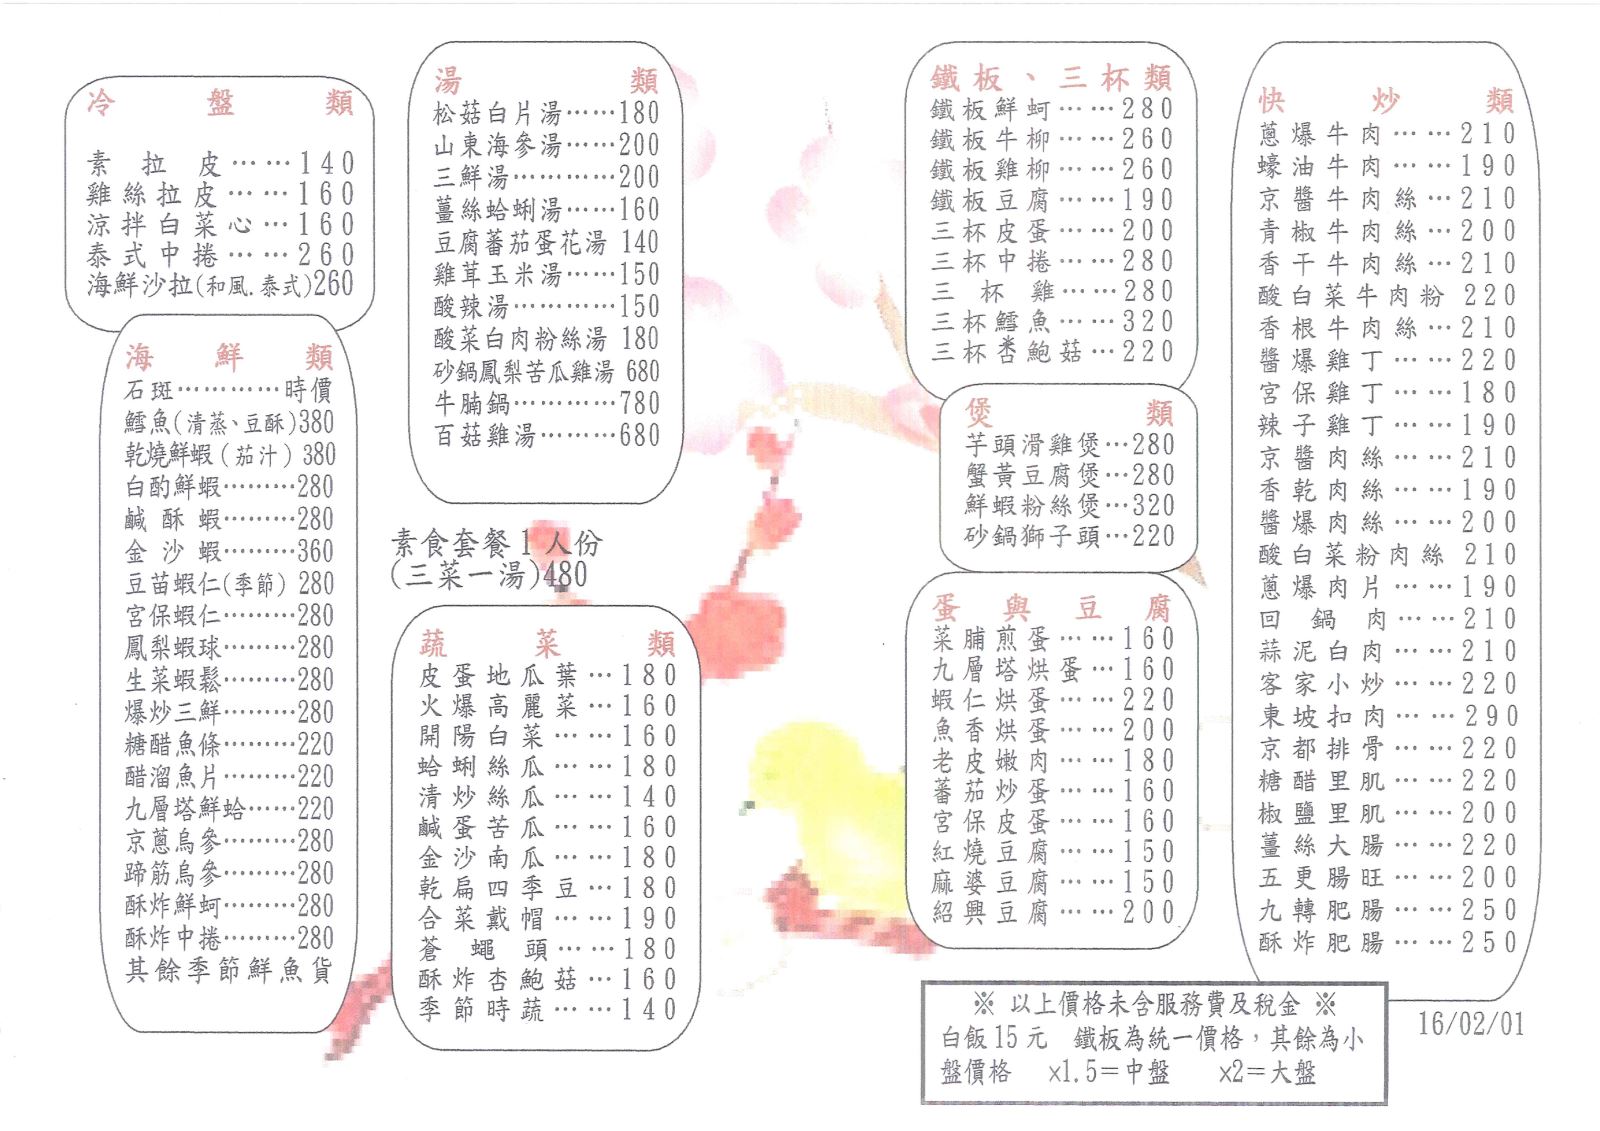 冷盤類
素拉皮……140
雞絲拉皮……160
涼拌白菜心…160
泰式中捲……260
海鮮沙拉(和風.泰式)260
海鮮類
石斑…………時價
鱈魚(清蒸、豆酥)380
乾燒鮮蝦(茄汁) 380
白酌鮮蝦………280
鹹酥蝦………280
金沙蝦………360
豆苗蝦仁(季節) 280
宮保蝦仁………280
鳳梨蝦球………280
生菜蝦鬆………280
爆炒三鮮………280
糖醋魚條………220
醋溜魚片………220
九層塔鮮蛤……220
京蔥烏參………280
蹄筋烏參………280
酥炸鮮蚵………280
酥炸中捲………280
其餘季節鮮魚貨
湯類
松菇白片湯……180
山東海參湯……200
三鮮湯…………200
薑絲蛤蜊湯……160
豆腐蕃茄蛋花湯 140
雞茸玉米湯……150
酸辣湯…………150
酸菜白肉粉絲湯 180
砂鍋鳳梨苦瓜雞湯 680
牛腩鍋…………780
百菇雞湯………680
素食套餐1人份
(三菜一湯)480
蔬菜類
皮蛋地瓜葉…180
火爆高麗菜…160
開陽白菜……160
蛤蜊絲瓜……180
清炒絲瓜……140
鹹蛋苦瓜……160
金沙南瓜……180
乾扁四季豆…180
合菜戴帽……190
蒼蠅頭……180
酥炸杏鮑菇…160
季節時蔬……140
鐵板、三杯類
鐵板鮮蚵……280
鐵板牛柳……260
鐵板雞柳……260
鐵板豆腐……190
三杯皮蛋……200
三杯中捲……280
三杯雞……280
三杯鱈魚……320
三杯杏鮑菇…220
煲類
芋頭滑雞煲…280
蟹黃豆腐煲…280
鮮蝦粉絲煲…320
砂鍋獅子頭…220
蛋與豆腐
菜脯煎蛋……160
九層塔烘蛋…160
蝦仁烘蛋……220
魚香烘蛋……200
老皮嫩肉……180
蕃茄炒蛋……160
宮保皮蛋……160
紅燒豆腐……150
麻婆豆腐……150
紹興豆腐……200
快炒類
蔥爆牛肉……210
蠔油牛肉……190
京醬牛肉絲…210
青椒牛肉絲…200
香干牛肉絲…210
酸白菜牛肉粉 220
香根牛肉絲…210
醬爆雞丁……220
宮保雞丁……180
辣子雞丁……190
京醬肉絲……210
香乾肉絲……190
醬爆肉絲……200
酸白菜粉肉絲 210
蔥爆肉片……190
回鍋肉……210
蒜泥白肉……210
客家小炒……220
東坡扣肉……290
京都排骨……220
糖醋里肌……220
椒鹽里肌……200
薑絲大腸……220
五更腸旺……200
九轉肥腸……250
酥炸肥腸……250
※ 以上價格未含服務費及稅金 ※
白飯15元 鐵板為統一價格,其餘為小
盤價格 x1.5=中盤 x2=大盤
16/02/01